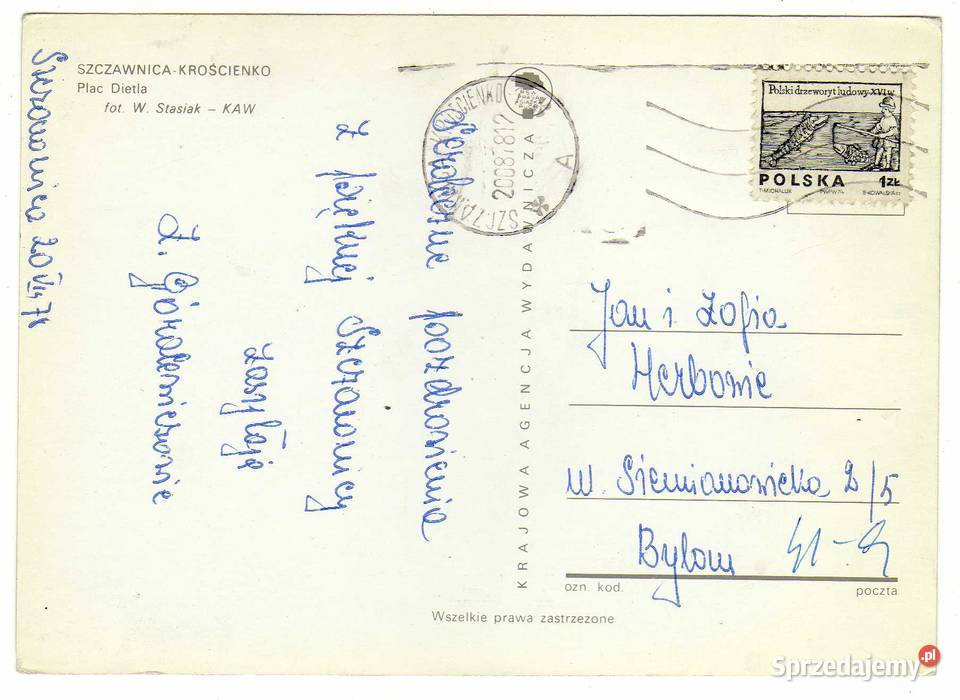 SZCZAWNICA-KROŚCIENKO
Plac Dietla
fot. W. Stasiak – KAW
Szczawnica 20 VIII 78
Serdeczne pozdrowienia
z pięknej Szczawnicy
zasyłają
J. Góralewiczowie
KRAJOWA AGENCJA WYDAWNICZA
KROŚCIENKO
200878
A
Polski drzeworyt ludowy XVI w.
POLSKA 1 ZŁ
T. MICHALUK PWPW
Jan i Zofia
Herbowie
ul. Siemianowicka 2/5
Bytom 41-9
ozn. kod. poczta
Wszelkie prawa zastrzeżone
Sprzedajemy.pl